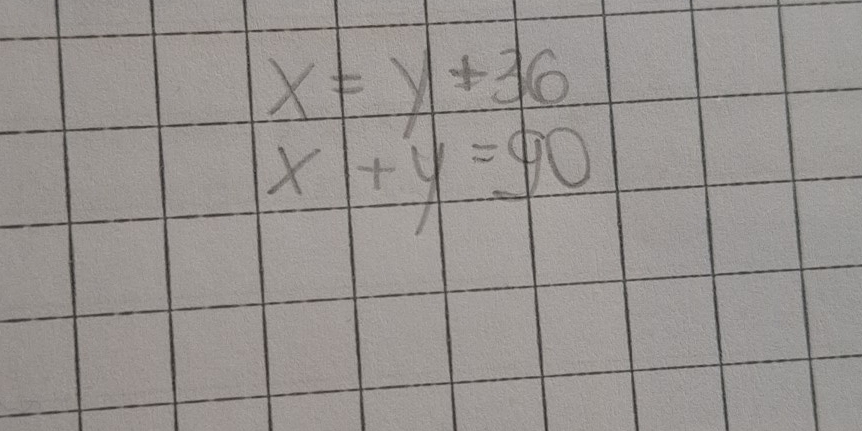 x = y + 36
x + y = 90